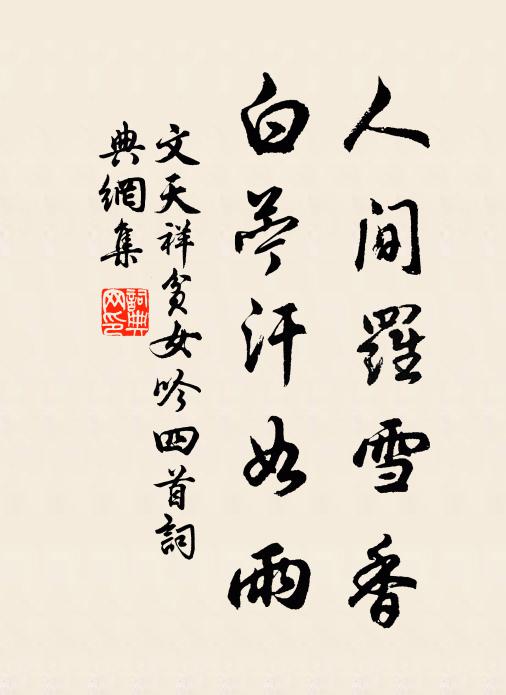 人間羅雪香
白苧汗如雨
文天祥貧女吟四首詞
典網集
詞典
网印